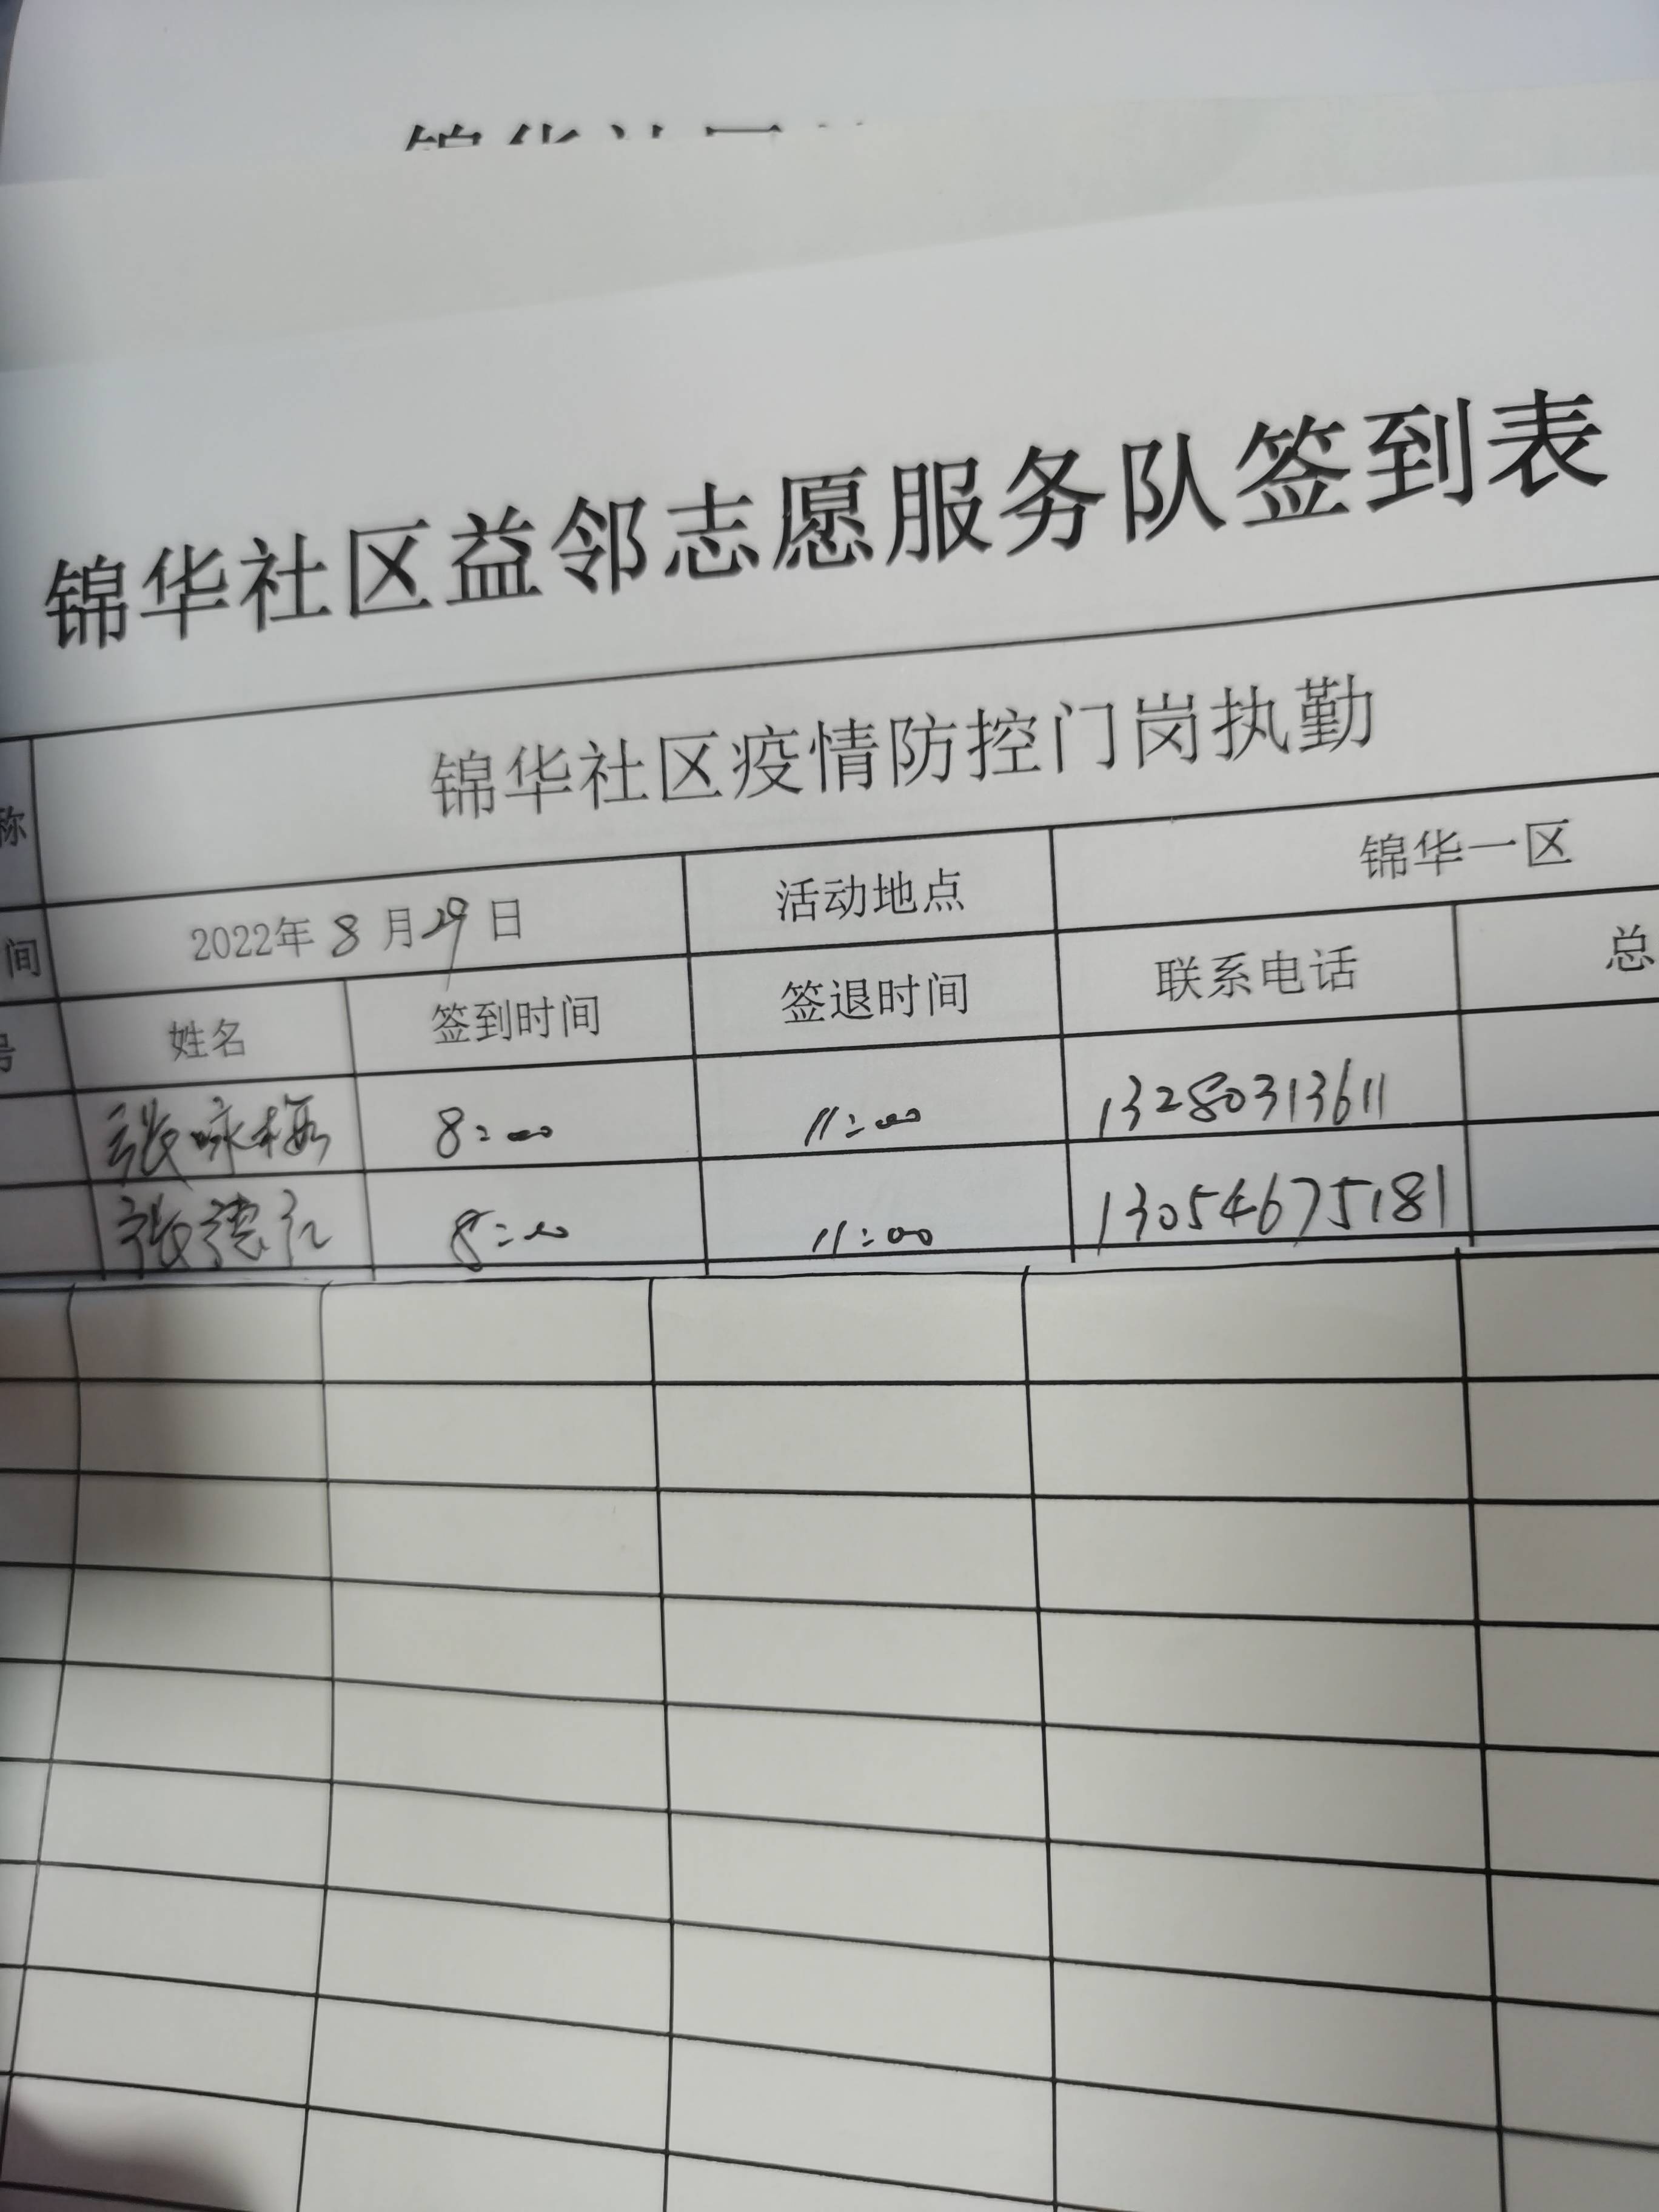 锦华社区益邻志愿服务队签到表
称 锦华社区疫情防控门岗执勤
间 2022年8月29日 活动地点 锦华一区
号 姓名 签到时间 签退时间 联系电话 总
张咏梅 8:00 11:00 13280313611
张德红 8:00 11:00 13054675181